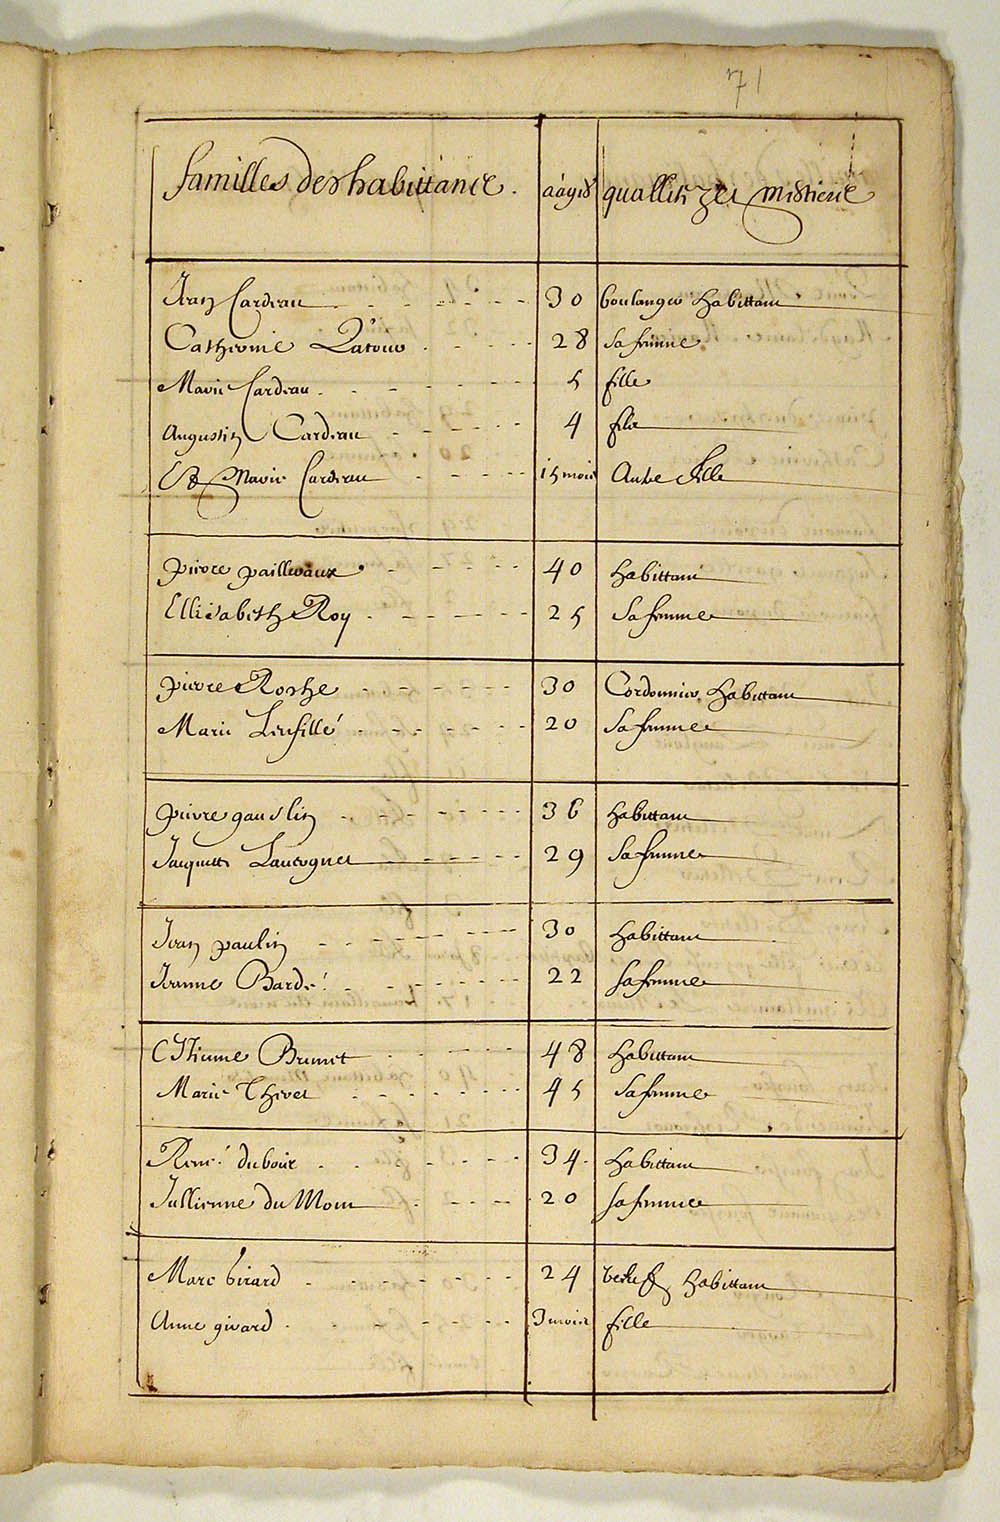 71
familles des habittans. aages quallitez et mestiers
Jean Cardeau 30 boulanger habittant
Catherine Latour 28 sa femme
Marie Cardeau 5 fille
Augustin Cardeau 4 fils
Et Marie Cardeau 15 mois Autre fille
pierre paillereaux 40 habittant
Ellisabeth Roy 25 Sa femme
pierre Roche 30 Cordonnier habittant
Marie 20 Sa femme
pierre gauslin 36 habittant
Jacquette Lauvergnet 29 Sa femme
Jean paulin 30 habittant
Jeanne Bardé 22 sa femme
Estienne Brunet 48 habittant
Marie Thevet 45 Sa femme
René dubois 34. habittant
Jullienne du Mont 20 sa femme
Marc girard 24 veuf habittant
Anne girard 3 mois fille